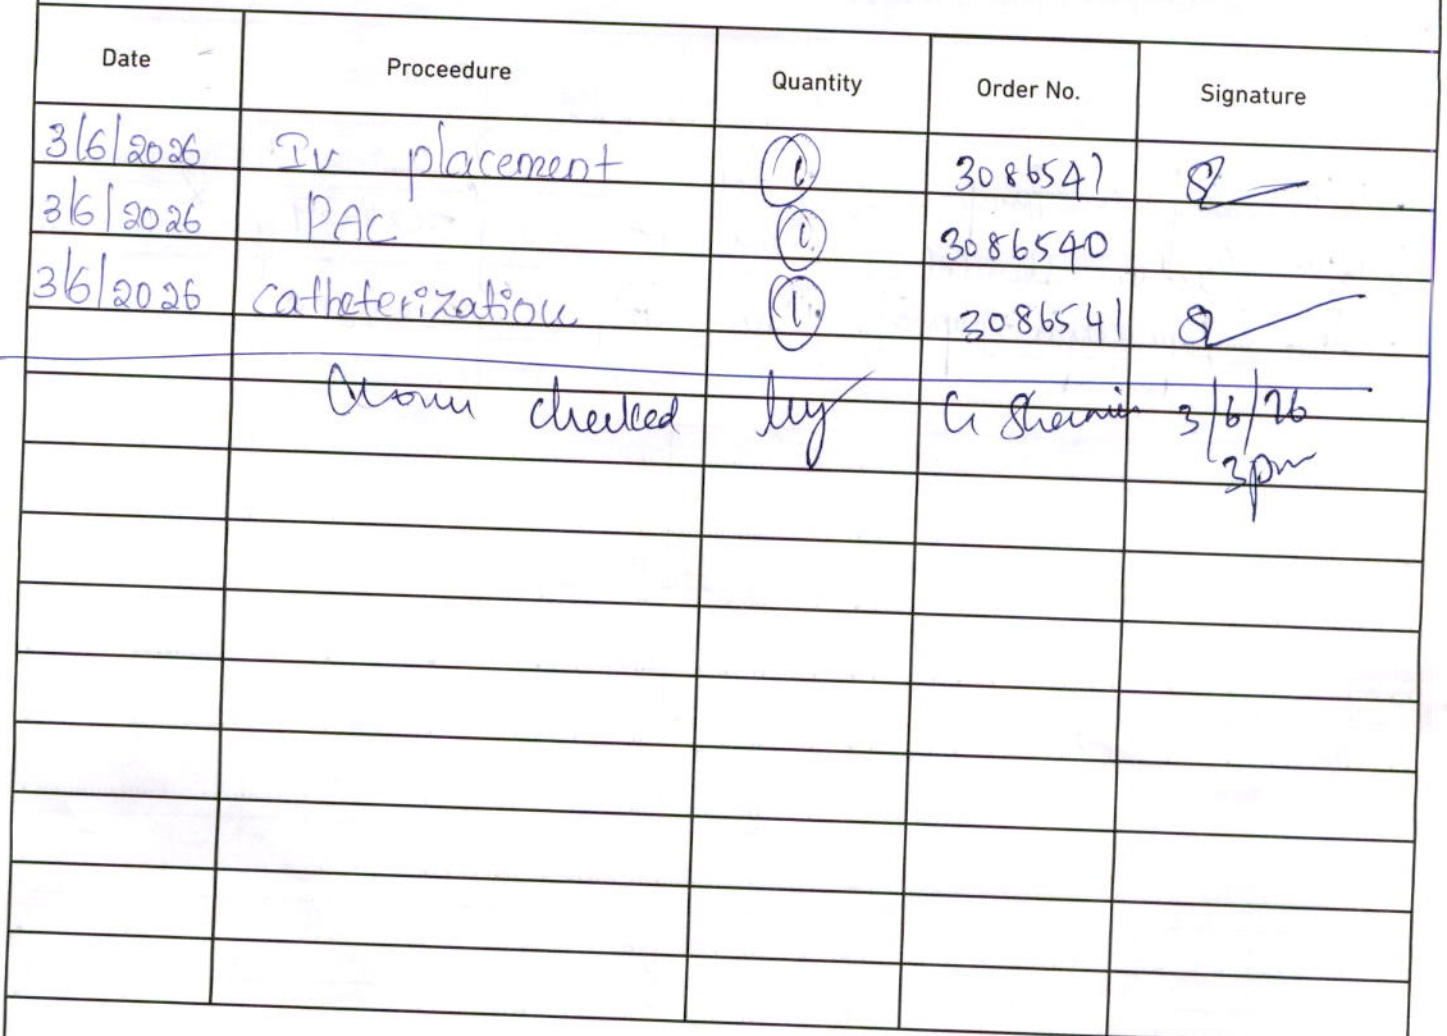 Date Proceedure Quantity Order No. Signature
3/6/2026 Iv placement 1 3086541
3/6/2026 PAC 1 3086540
3/6/2026 catheterization 1 3086541
checked by 3/6/26
3pm